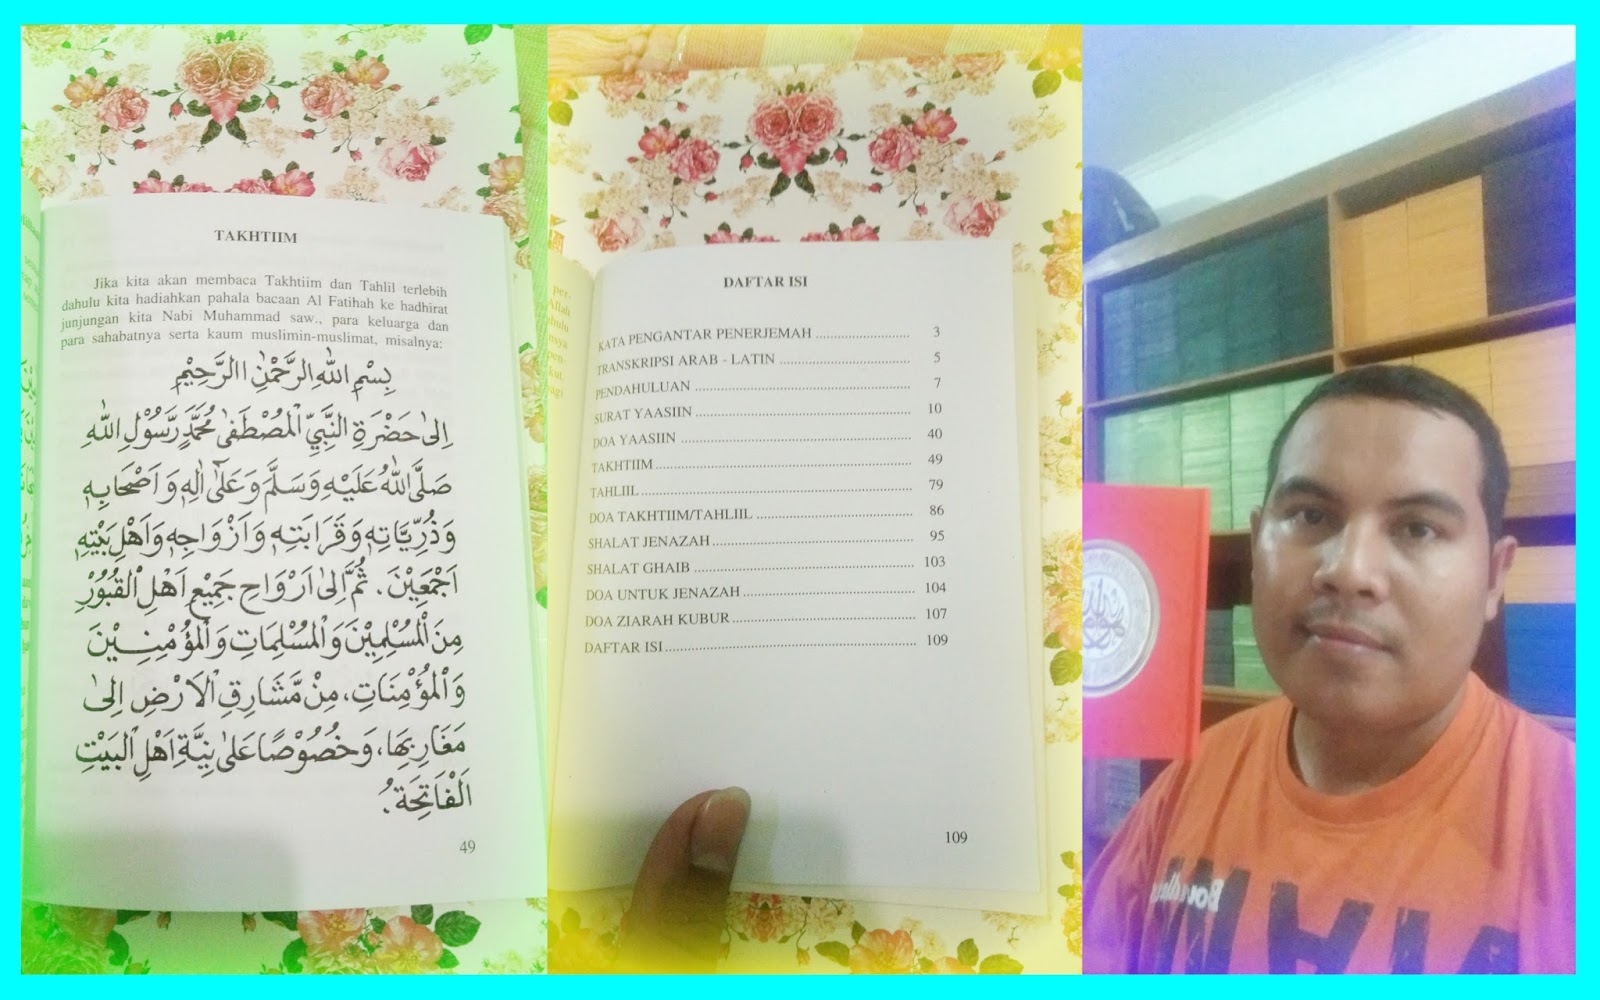 TAKHTIIM
Jika kita akan membaca Takhtiim dan Tahlil terlebih
dahulu kita hadiahkan pahala bacaan Al Fatihah ke hadhirat
junjungan kita Nabi Muhammad saw., para keluarga dan
para sahabatnya serta kaum muslimin-muslimat, misalnya:
بِسْمِ اللّٰهِ الرَّحْمٰنِ االرَّحِيْمِ
اِلىٰ حَضْرَةِ النَّبِيِّ الْمُصْطَفىٰ مُحَمَّدٍ رَّسُوْلِ اللّٰهِ
صَلَّى اللّٰهُ عَلَيْهِ وَسَلَّمَ وَعَلىٰٓ اٰلِهٖ وَاَصْحَابِهٖ
وَذُرِّيَّاتِهٖ وَقَرَابَتِهٖ وَاَزْوَاجِهٖ وَاَهْلِ بَيْتِهٖ
اَجْمَعِيْنَ. ثُمَّ اِلىٰ اَرْوَاحِ جَمِيْعِ اَهْلِ الْقُبُوْرِ
مِنَ الْمُسْلِمِيْنَ وَالْمُسْلِمَاتِ وَالْمُؤْمِنِيْنَ
وَالْمُؤْمِنَاتِ، مِنْ مَّشَارِقِ الْاَرْضِ اِلىٰ
مَغَارِبِهَا، وَخُصُوْصًا عَلىٰ نِيَّةِ اَهْلِ الْبَيْتِ
اَلْفَاتِحَةُ.
49
per-
Allah
DAFTAR ISI
KATA PENGANTAR PENERJEMAH ........................... 3
TRANSKRIPSI ARAB - LATIN ..................................... 5
PENDAHULUAN ........................................................... 7
SURAT YAASIIN ........................................................... 10
DOA YAASIIN ............................................................... 40
TAKHTIIM ..................................................................... 49
TAHLIIL ......................................................................... 79
DOA TAKHTIIM/TAHLIIL ........................................... 86
SHALAT JENAZAH ....................................................... 95
SHALAT GHAIB ............................................................ 103
DOA UNTUK JENAZAH ............................................... 104
DOA ZIARAH KUBUR .................................................. 107
DAFTAR ISI ................................................................... 109
109